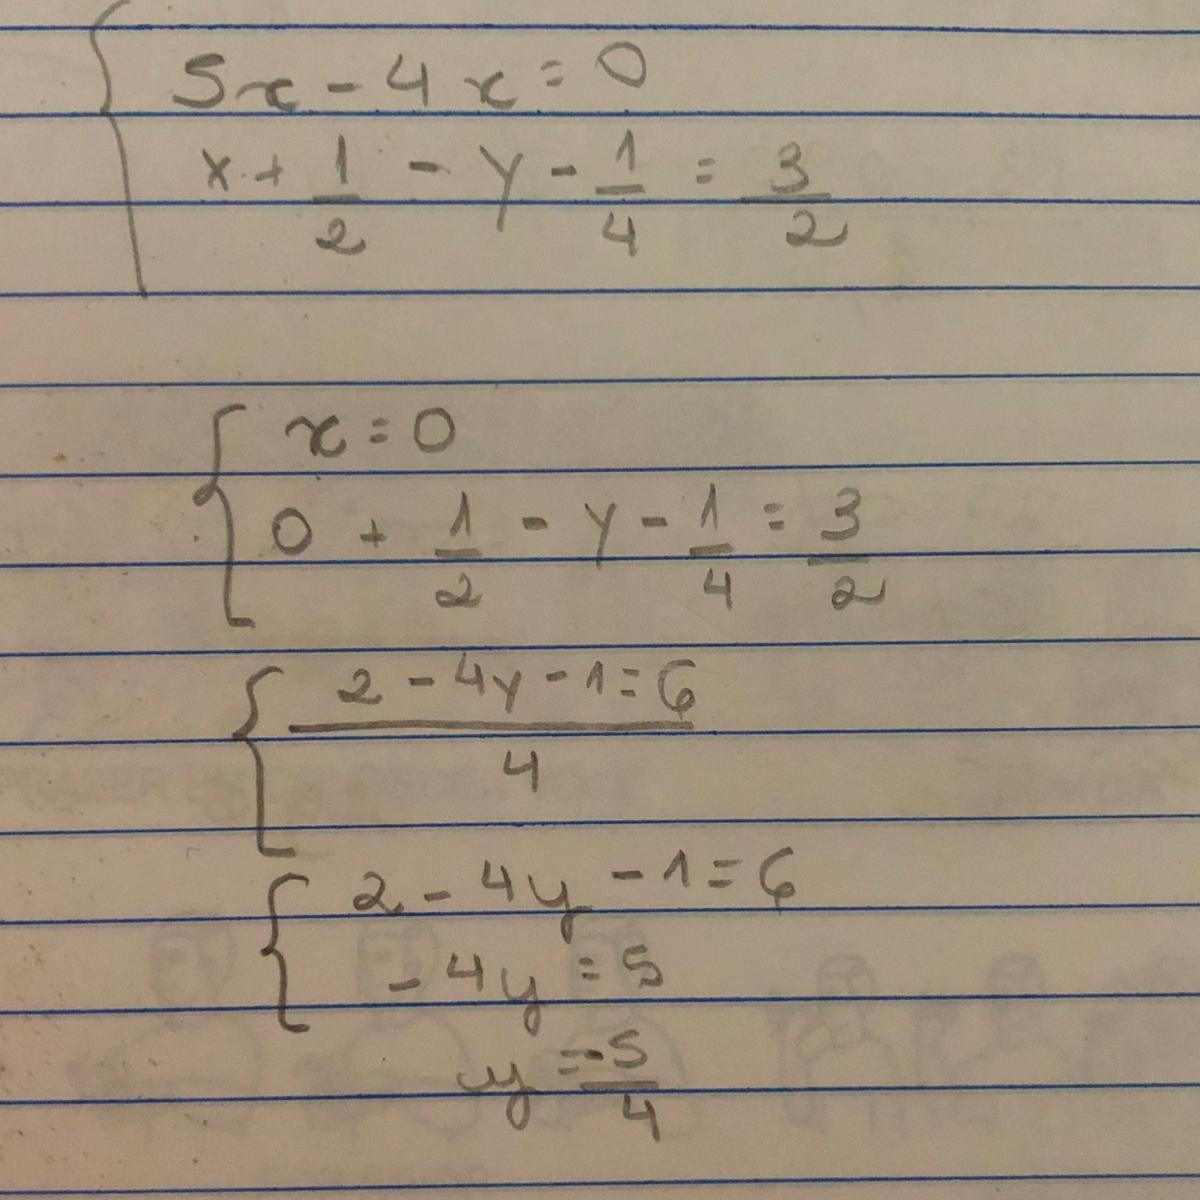 5x - 4x = 0
x + 1/2 - y - 1/4 = 3/2
x = 0
0 + 1/2 - y - 1/4 = 3/2
2 - 4y - 1 = 6
4
2 - 4y - 1 = 6
- 4y = 5
y = -5/4